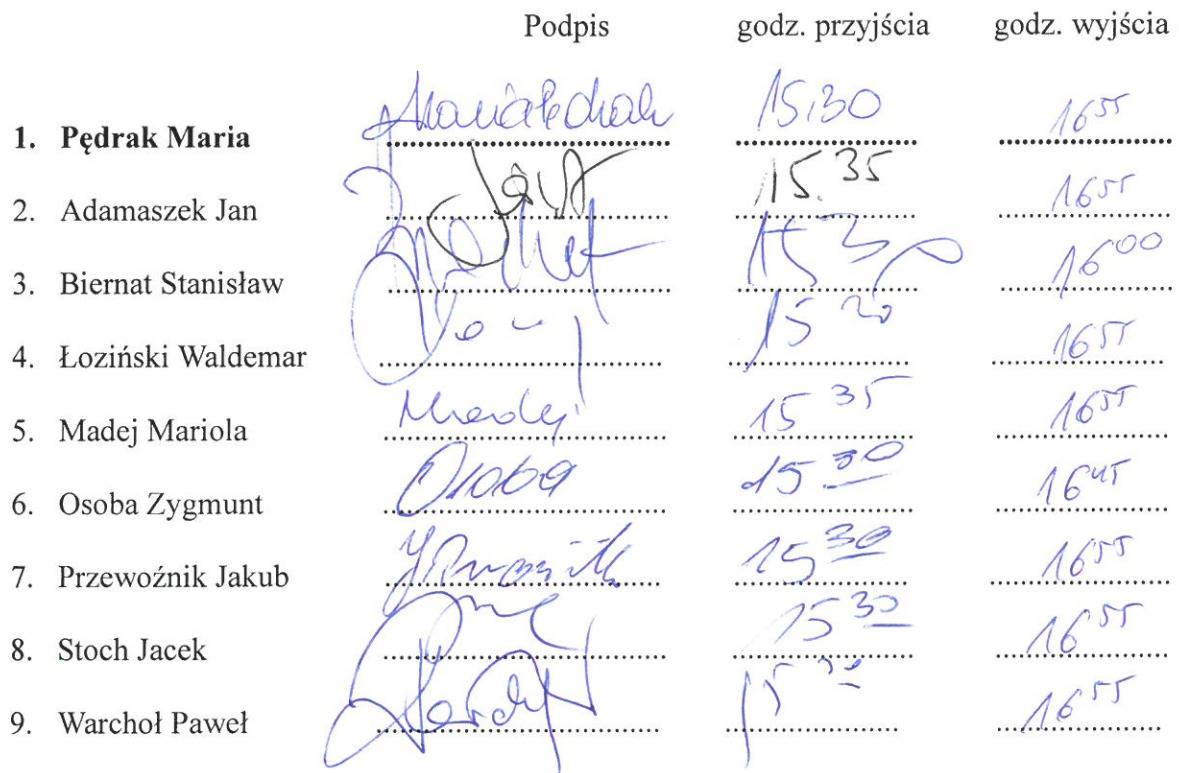 Podpis godz. przyjścia godz. wyjścia
1. Pędrak Maria 15,30 16⁵⁵
2. Adamaszek Jan 15.³⁵ 16⁵⁵
3. Biernat Stanisław 15³⁰ 16⁰⁰
4. Łoziński Waldemar 15 16⁵⁵
5. Madej Mariola Madej 15³⁵ 16⁵⁵
6. Osoba Zygmunt Osoba 15³⁰ 16⁴⁵
7. Przewoźnik Jakub 15³⁰ 16⁵⁵
8. Stoch Jacek 15³⁰ 16⁵⁵
9. Warchoł Paweł 15 16⁵⁵